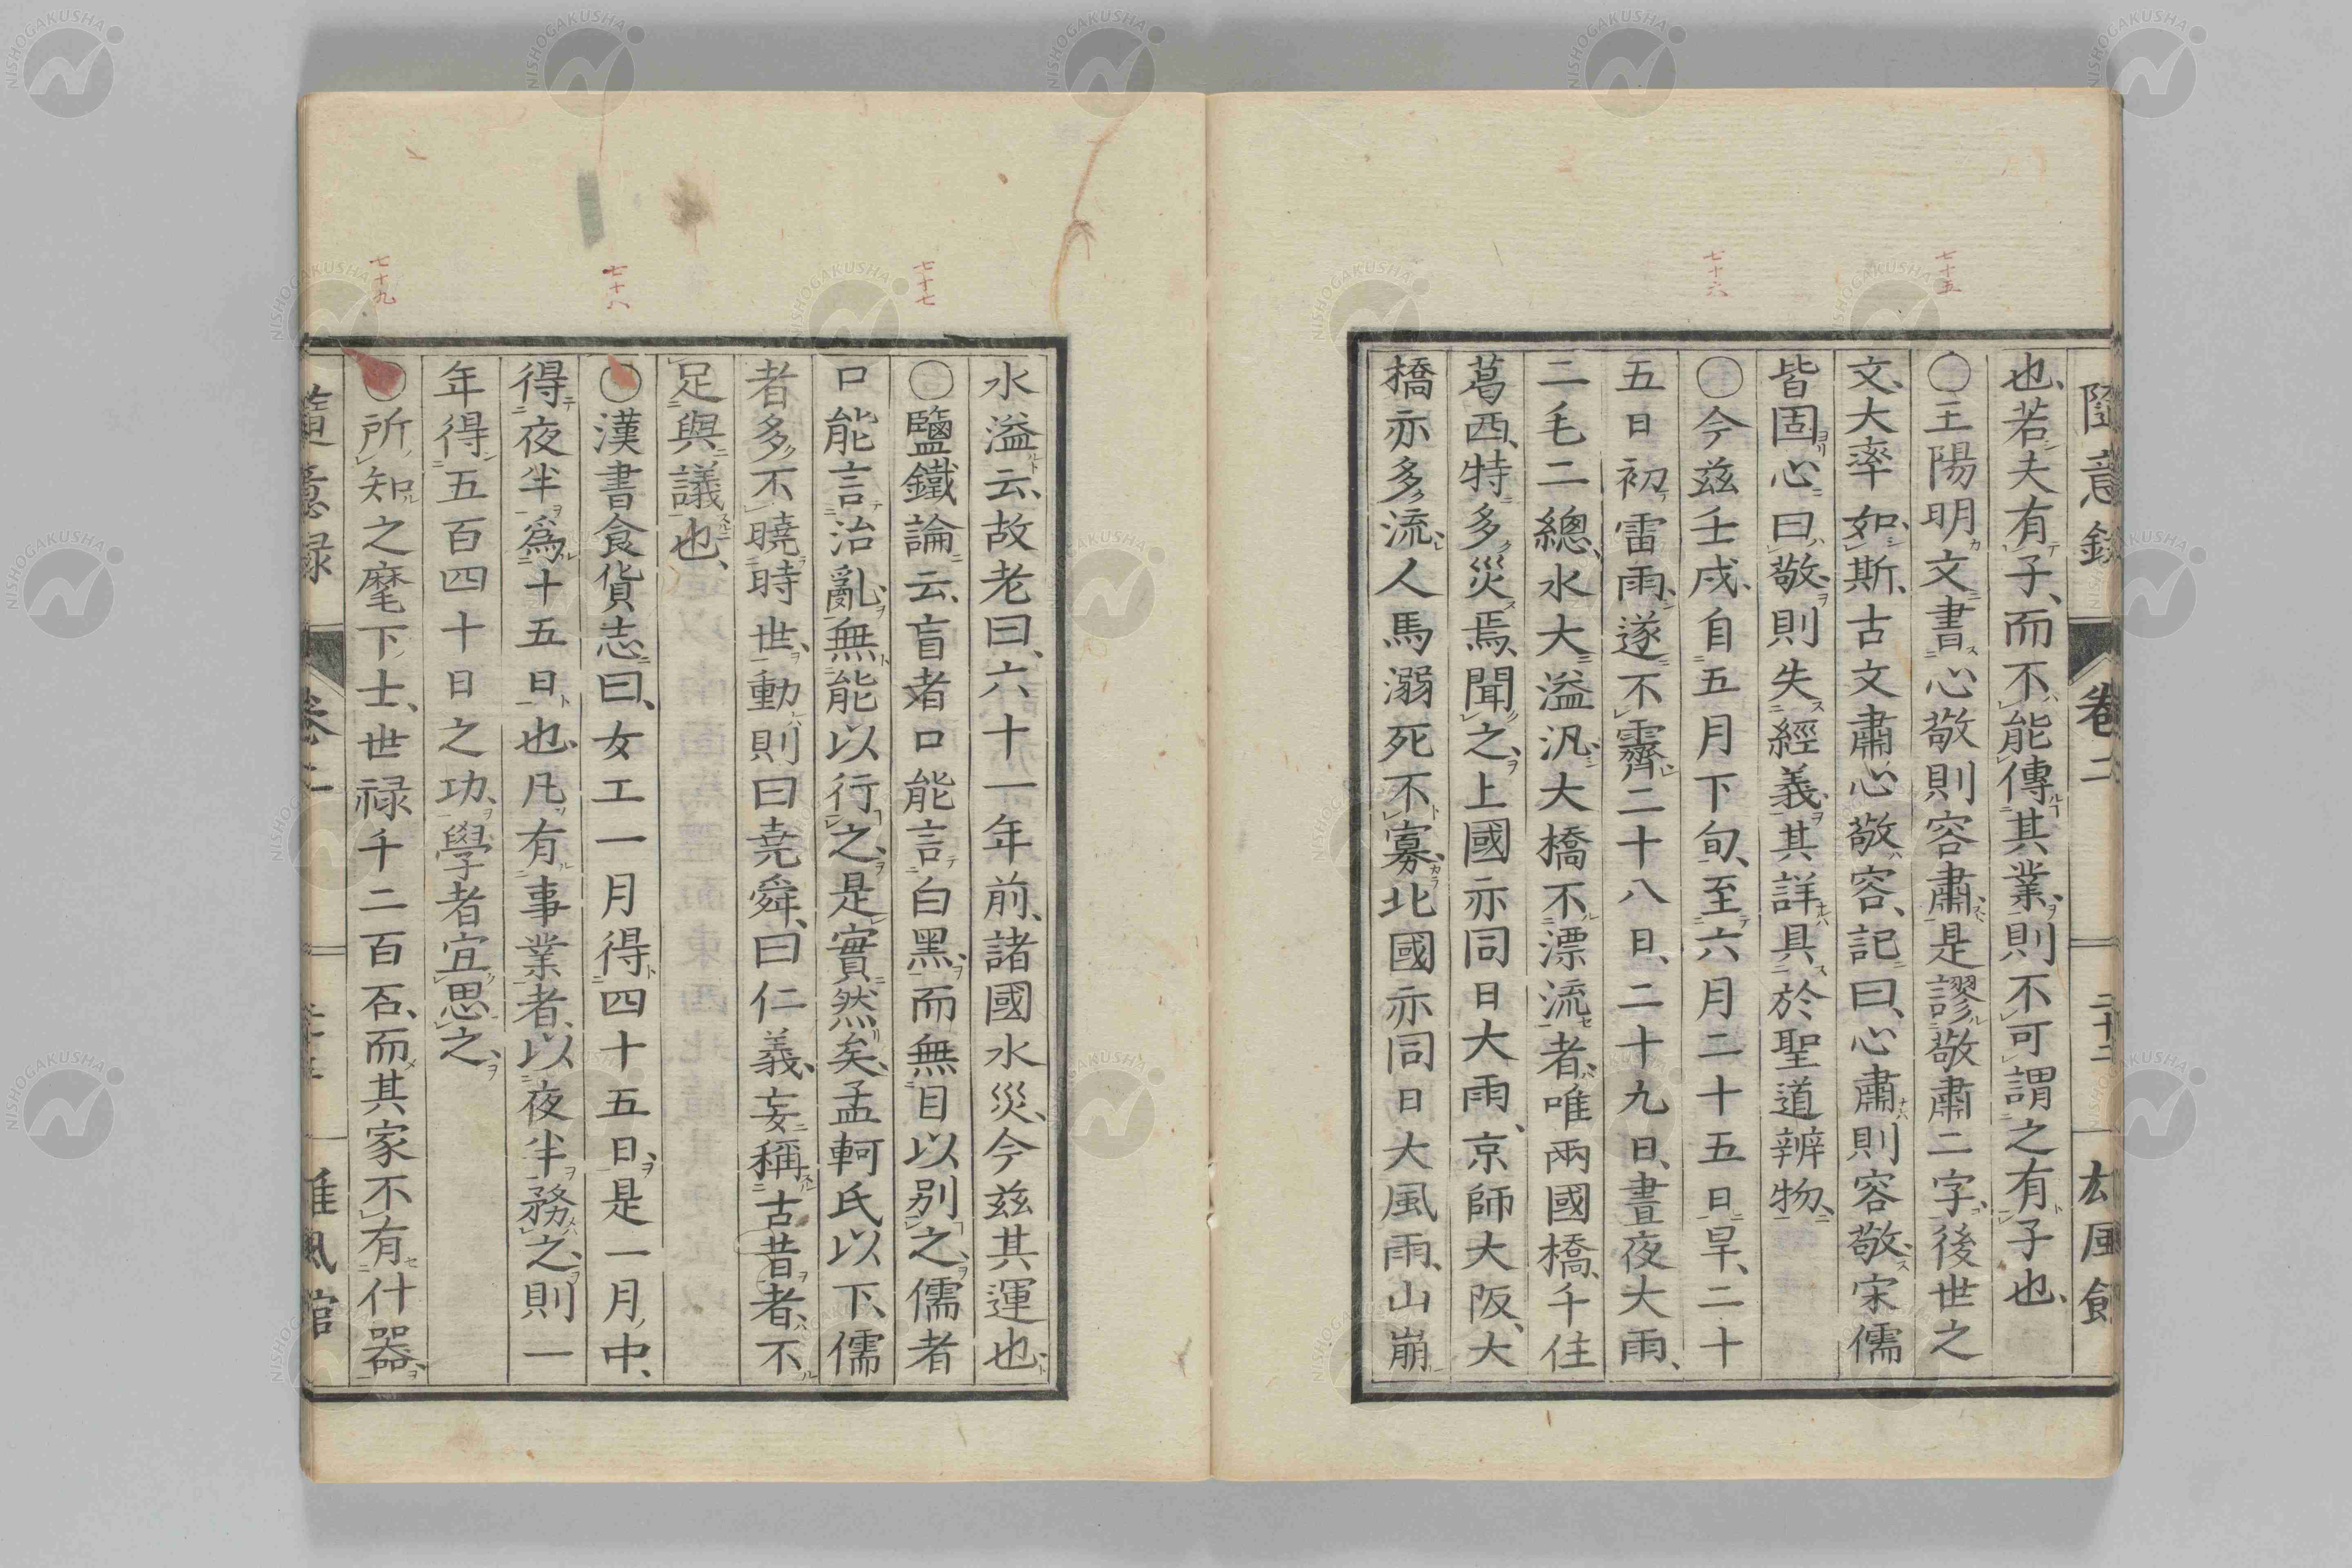 隨意録
卷二
二十二
也、若夫有子、而不能傳其業、則不可謂之有子也、
七十五
○王陽明文書心敬則容肅、是謬敬肅二字、後世之
文、大率如斯、古文肅心敬容、記曰、心肅則容敬、宋儒
皆固心曰敬、則失經義、其詳具於聖道辨物、
七十六
○今茲壬戌、自五月下旬、至六月二十五日旱、二十
五日初雷雨、遂不霽、二十八日、二十九日、晝夜大雨、
二毛二總、水大溢汎、大橋不漂流者、唯兩國橋、千住
葛西、特多災焉、聞之、上國亦同日大雨、京師大阪、大
橋亦多流、人馬溺死不寡、北國亦同日大風雨、山崩
水溢云、故老曰、六十一年前、諸國水災、今茲其運也、
七十七
○鹽鐵論云、盲者口能言白黑、而無目以別之、儒者
口能言治亂、無能以行之、是實然矣、孟軻氏以下、儒
者多不曉時世、動則曰堯舜、曰仁義、妄稱古昔者、不
足與議也、
七十八
○漢書食貨志曰、女工一月得四十五日、是一月中、
得夜半爲十五日也、凡有事業者、以夜半務之、則一
年得五百四十日之功、學者宜思之、
七十九
○所知之麾下士、世禄千二百石、而其家不有什器、